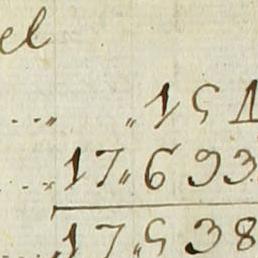 el
...„ „151
...„17„693
„17„538